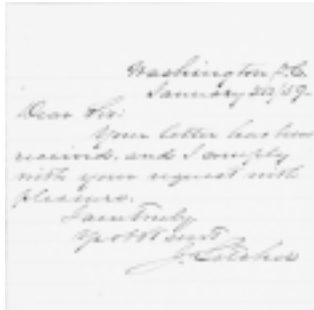 Washington, D.C.
January 20/59-
Dear Sir:
Your letter has been
received, and I comply
with your request with
pleasure.
I am truly
Yr obt svt
J.